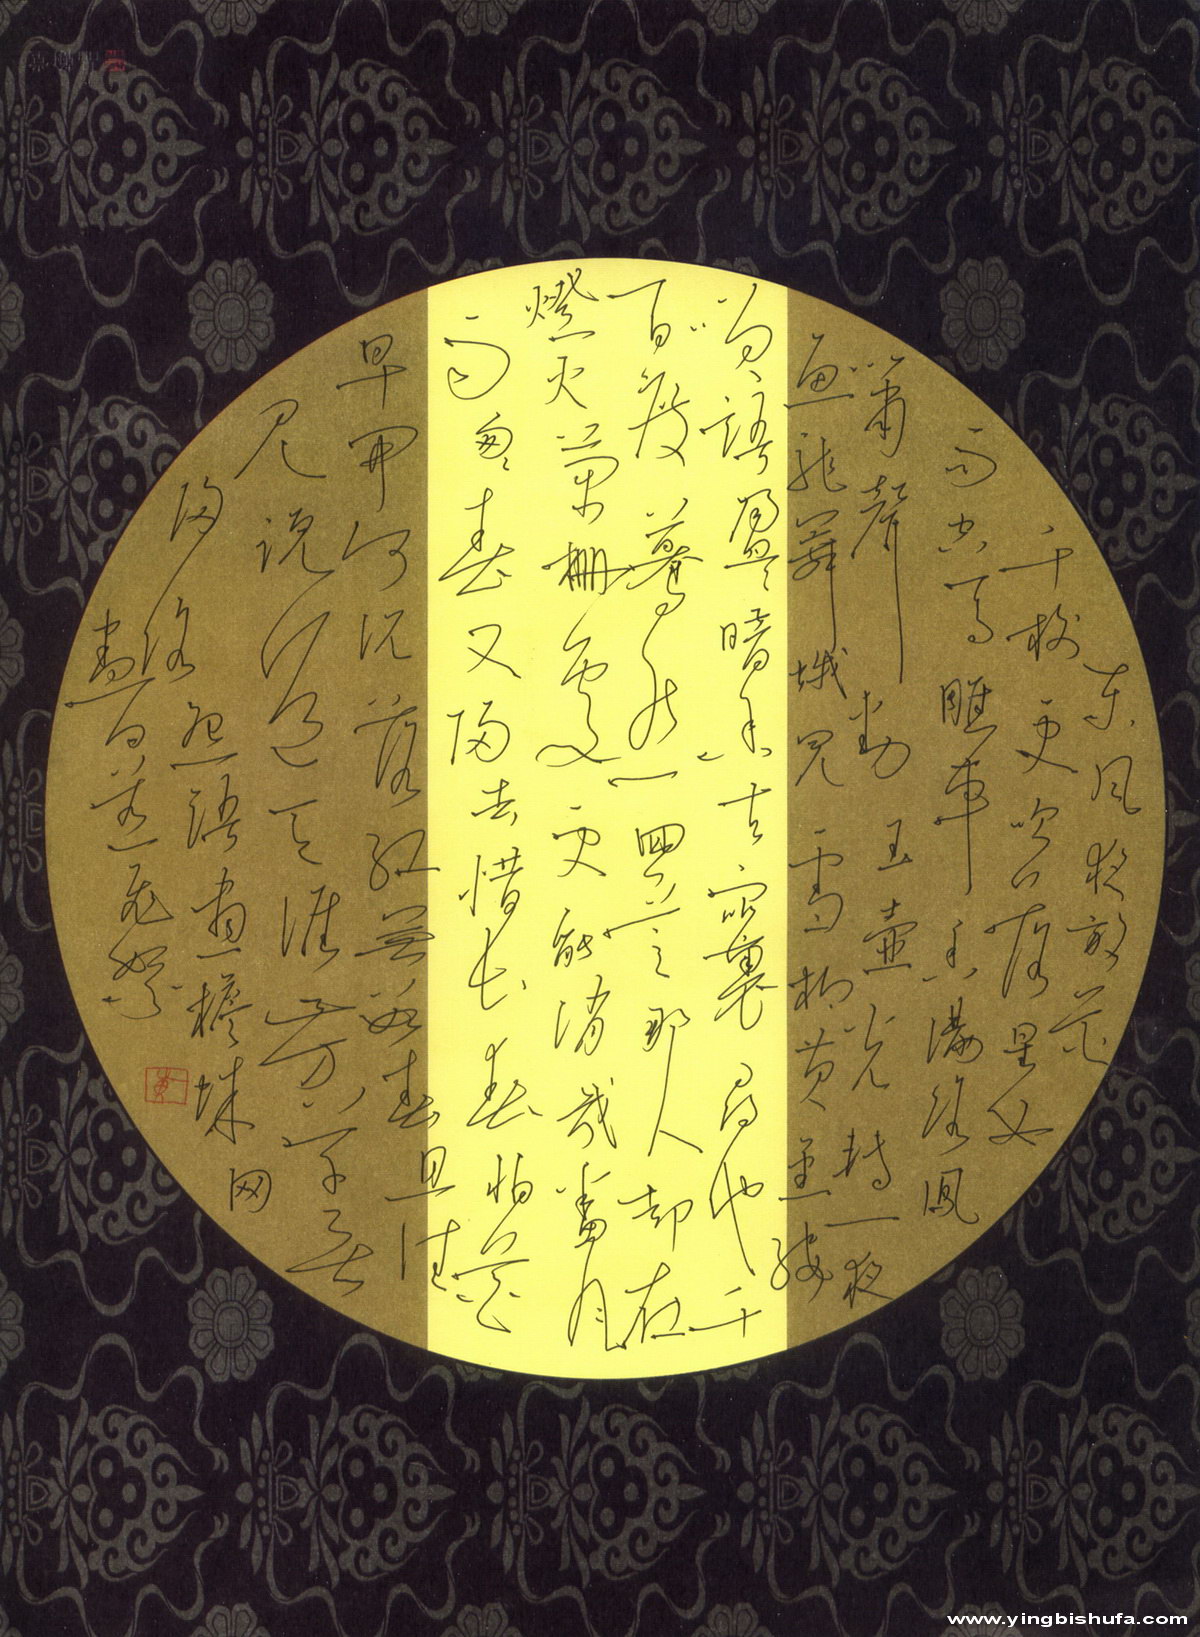 东风夜放花
千树更吹落星如
雨宝马雕车香满路凤
箫声动玉壶光转一夜
鱼龙舞蛾儿雪柳黄金缕
笑语盈盈暗香去众里寻他千
百度蓦然回首那人却在
灯火阑珊处更能消几番风
雨匆匆春又归去惜长春怕花
早开何况落红无数春且住
见说道天涯芳草无
归路怨语画檐蛛网
www.yingbishufa.com